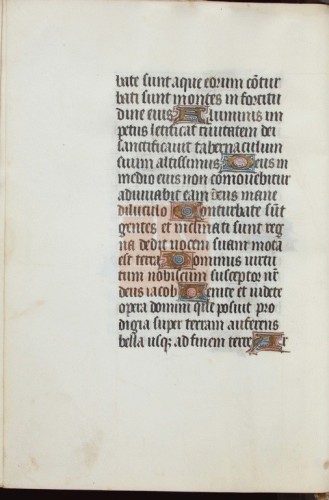 bate sunt aque eorum cōtur
bati sunt montes in fortitu
dine eius Fluminis im
petus letificat ciuitatem dei
sanctificauit tabernaculum
suum altissimus Deus in
medio eius non comouebitur
adiuuabit eam deus mane
diluculo Conturbate sūt
gentes et inclinati sunt reg
na dedit uocem suam mota
est terra Dominus uirtu
tum nobiscum susceptor nr̄
deus iacob Uenite et uidete
opera domini que posuit pro
digia super terram auferens
bella usqȝ ad finem terre Ar